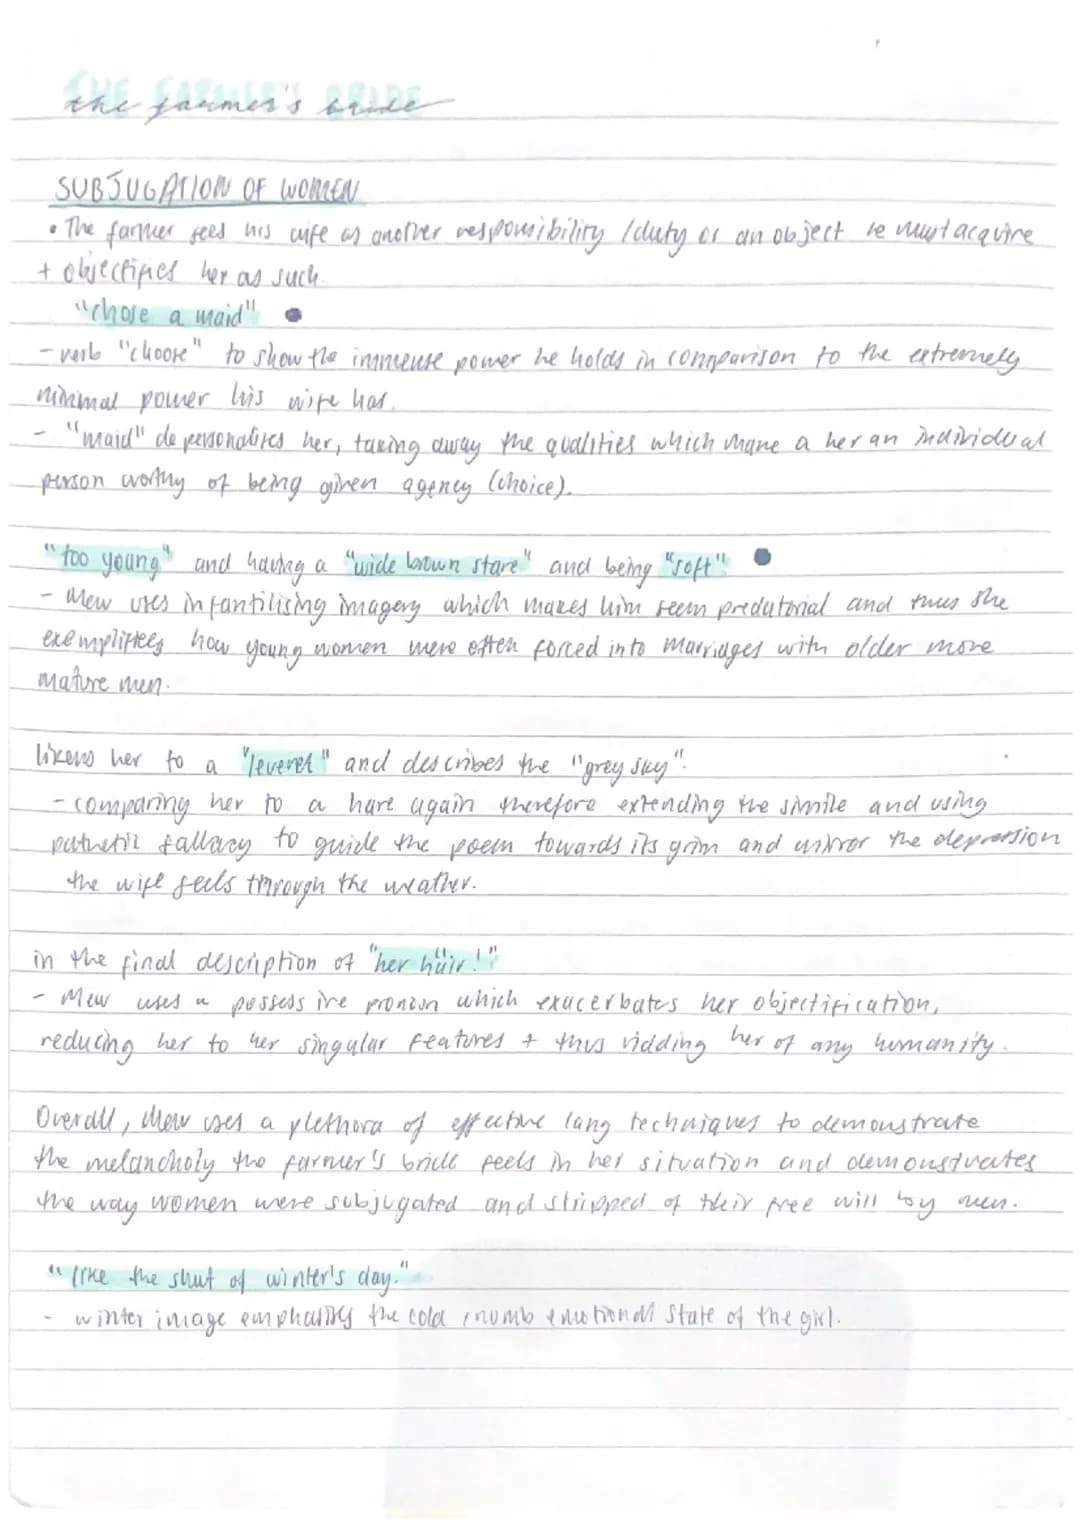 THE FARMER'S BRIDE
the farmer's bride
SUBJUGATION OF WOMEN
• The farmer sees his wife as another responsibility /duty or an object he must acquire
+ objectifies her as such.
"chose a maid"
- verb "choose" to show the immense power he holds in comparison to the extremely
minimal power his wife has.
- "maid" depersonalises her, taking away the qualities which make a her an individual
person worthy of being given agency (choice).
"too young" and having a "wide brown stare" and being "soft".
- Mew uses infantilising imagery which makes him seem predatorial and thus she
exemplifies how young women were often forced into marriages with older more
mature men.
likens her to a "leveret" and describes the "grey sky".
- comparing her to a hare again therefore extending the simile and using
pathetic fallacy to guide the poem towards its grim and mirror the depression
the wife feels through the weather.
in the final description of "her hair!"
- Mew uses a possessive pronoun which exacerbates her objectification,
reducing her to her singular features + thus ridding her of any humanity.
Overall, Mew uses a plethora of effective lang techniques to demonstrate
the melancholy the farmer's bride feels in her situation and demonstrates
the way women were subjugated and stripped of their free will by men.
"like the shut of winter's day."
- winter image emphasises the cold, numb emotional state of the girl.